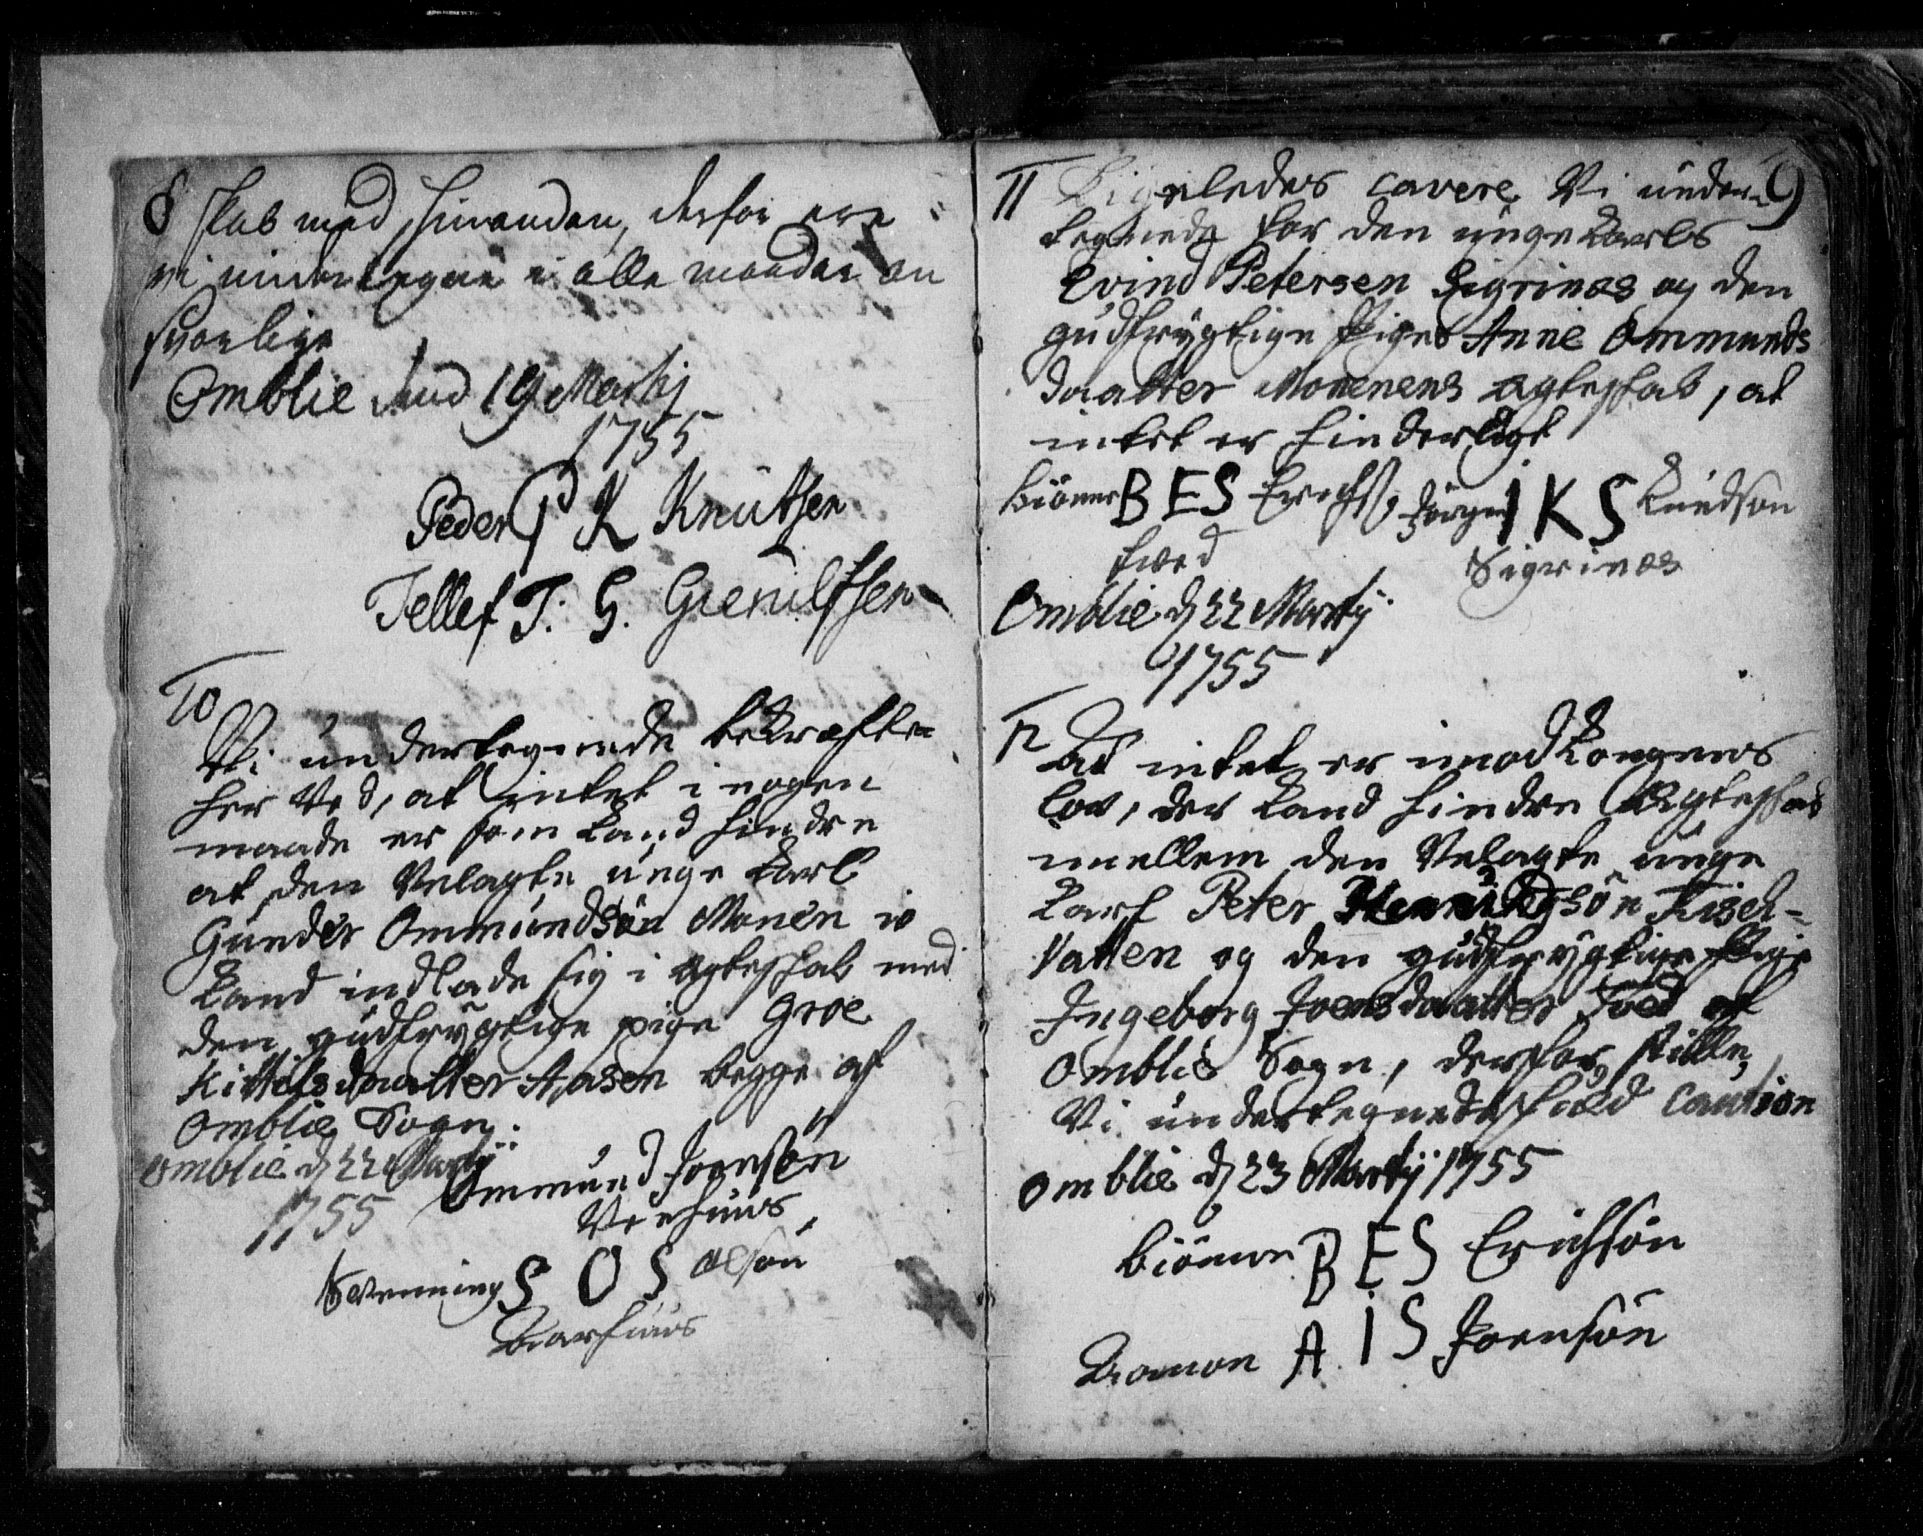 8
skab med hinanden, derfor ere
vi underlegne i alle maader an
svarlige
Omblie dend 19 Martij
1755
Peder P K Knutsen
Tellef T. G. Gunulfsen
10
Vi undertegnede bekræfte
her ved, at intet i nogen
maade er som kand hindre
at den Velagte unge karl
Gunder Ommundsøn Monen io
kand indlade sig i ægteskab med
den gudfrygtige pige Groe
Kittelsdaatter Aasen begge af
Omblie Sogn.
Omblie d 22 Martij
1755
Ommund Joensøn
Veehuus
Svenning S O S Olsøn
Barhuus
11
9
Ligeledes cavere Vi under-
tegnede for den unge karls
Evind Petersen Sigrinæs og den
gudfrygtige Piges Anne Ommunds
daatter Monenens ægteskab, at
intet er hinderligt
Biønne B E S Erichs. Jørgen I K S Knudson
Foed
Sigrinæs
Omblie d 22 Martij
1755
12
At intet er imod Kongens
lov, der kand hindre Ægteskab
imellem den Velagte unge
karl Peter Henrichsøn Fisch-
vatten og den gudfrygtige Pige
Ingeborg Joensdaatter Foed af
Omblie Sogn, derfor stille
Vi undertegnede hoed Caution
Omblie d 23 Martij 1755
Biønne B E S Erichsøn
Aamon A I S Joensøn